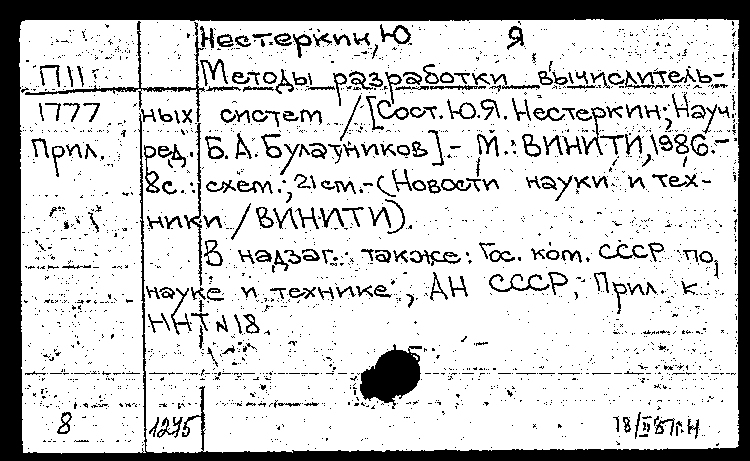 Нестеркин, Ю Я
П11 Методы разработки вычислитель-
1777 ных систем / [Сост. Ю.Я. Нестеркин; Науч.
Прил. ред. Б.А. Булатников]. - М.: ВИНИТИ, 1986. -
8с.: схем.; 21 см. - (Новости науки и тех-
ники / ВИНИТИ).
В надзаг. также: Гос. ком. СССР по
науке и технике, АН СССР, Прил. к
ННТ № 18.
8 1275 18/II 87г.